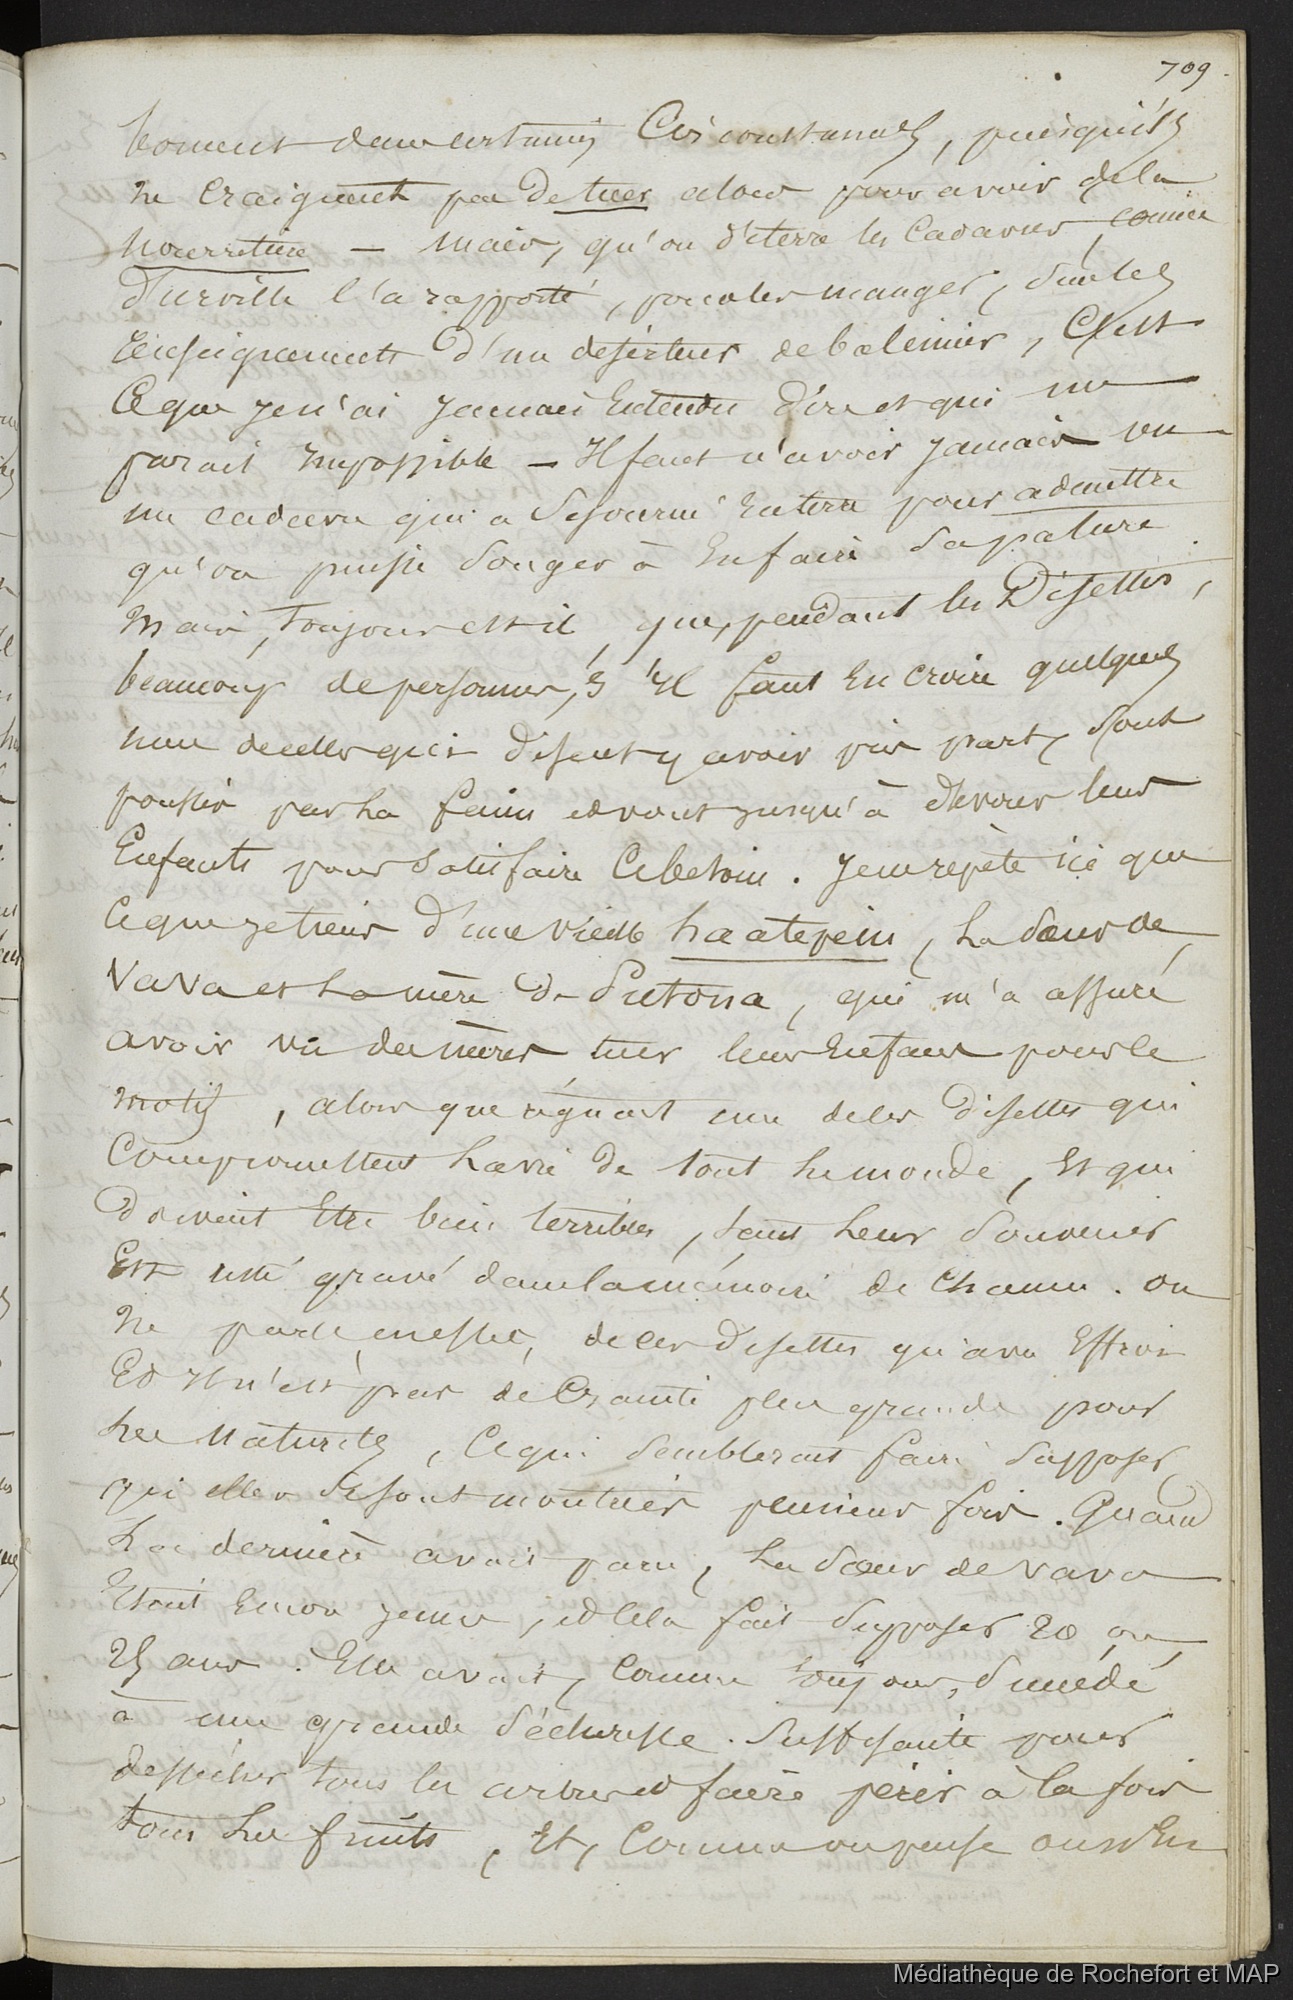 709
boment dans certaines Circonstances, puisqu'ils
ne craignent pas de tuer alors pour avoir de la
nourriture — mais, qu'on déterre les Cadavres, comme
d'urville l'a rapporté, pour les manger, sur les
renseignements d'un déserteur de baleinier, C'est
Ce que je n'ai jamais Entendu dire et qui me
parait impossible — Il faut n'avoir jamais vu
un cadavre qui a Séjourné Enterré pour admettre
qu'on puisse Songer à En faire Sa pature.
Mais, Toujours est il, que, pendant les Disettes,
beaucoup de personnes, s'Il faut En croire quelques
unes de celles qui disent y avoir pris part, Sont
poussés par La faim et vont jusqu'à dévorer leurs
Enfants pour Satisfaire Ce besoin. Je ne répète ici que
Ce que je tiens d'une vieille haatepeiu, La Sœur de
Vava et La mère de Putona, qui m'a assuré
avoir vu des mères tuer leurs Enfans pour ce
motif, alors que régnait une de ces disettes qui
Compromettent La vie de tout Le monde, Et qui
doivent Etre bien terribles, tant Leur Souvenir
Est resté gravé dans la mémoire de Chacun. on
ne parle, en effet, de ces disettes qu'avec Effroi
Et Il n'est pas de Crainte plus grande pour
Les Naturels, Ce qui Semblerait faire Supposer
qu'elles Se sont montrées plusieurs fois. Quand
La dernière avait paru, La Sœur de Vava
Etait Encore jeune, et Cela fait Supposer 20 ou
25 ans. Elle avait, Comme toujours, Succédé
à une grande Sécheresse. Suffisante pour
dessécher tous les arbres et faire périr à la fois
tous Les fruits, Et, Comme on pense on n'En
Médiathèque de Rochefort et MAP